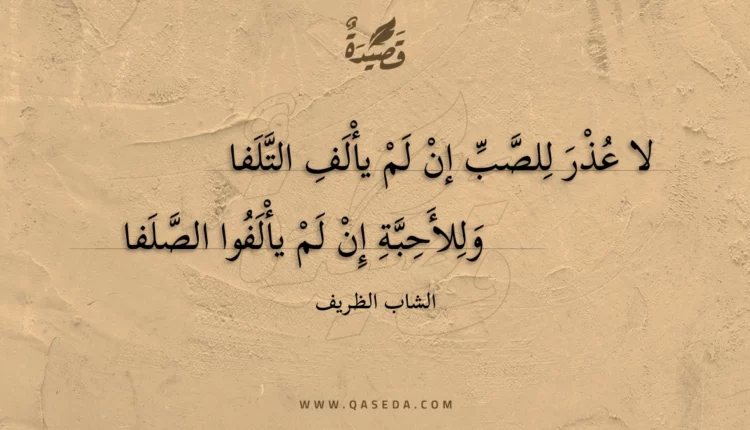 قَصِيدَةٌ
لا عُذْرَ لِلصَّبِّ إنْ لَمْ يأْلَفِ التَّلَفا
وَلِلأَحِبَّةِ إِنْ لَمْ يأْلَفُوا الصَّلَفا
الشاب الظريف
WWW.QASEDA.COM